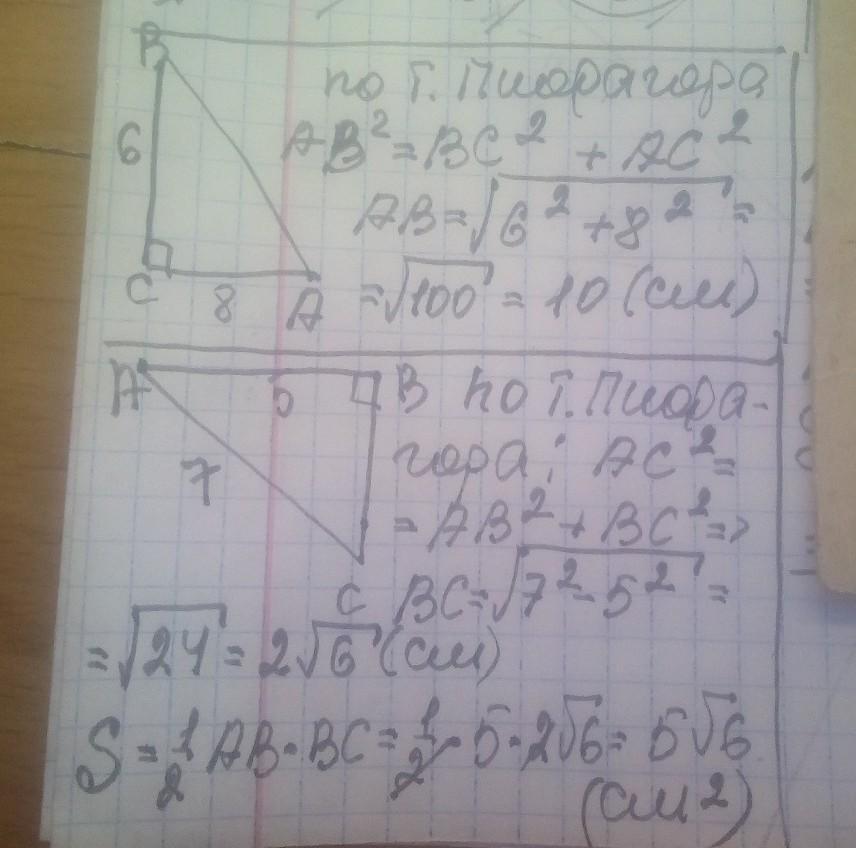 B
по Т. Пиорагора
6
AB² = BC² + AC²
AB = √6² + 8² =
C
8
A
= √100 = 10 (см)
A
5
B
по Т. Пиора-
гора: AC² =
7
= AB² + BC² =>
C
BC = √7² - 5² =
= √24 = 2√6 (см)
S = 1/2 AB · BC = 1/2 · 5 · 2√6 = 5√6
(см²)